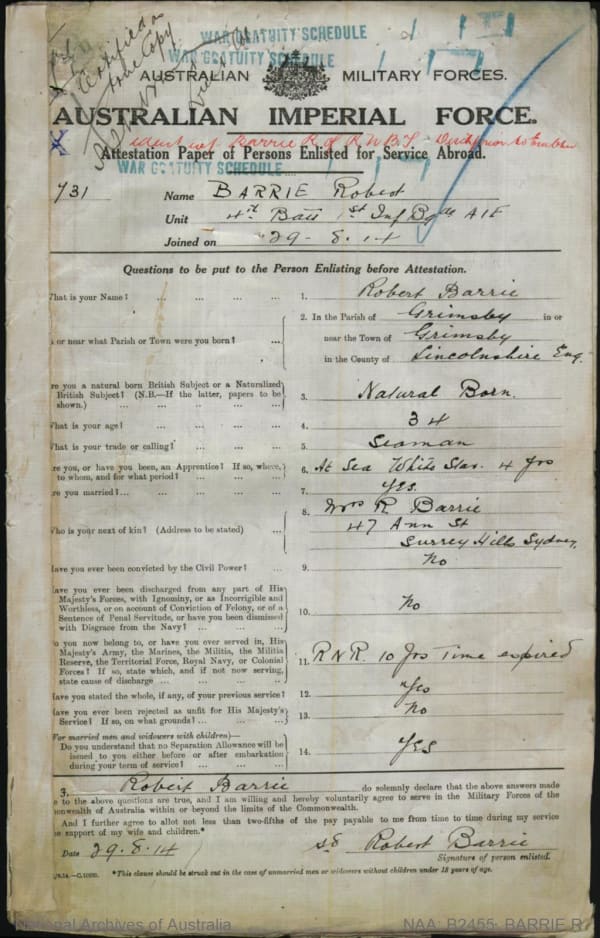 Certified a
true Copy
WAR GRATUITY SCHEDULE
WAR GRATUITY SCHEDULE
AUSTRALIAN MILITARY FORCES.
AUSTRALIAN IMPERIAL FORCE.
Attestation Paper of Persons Enlisted for Service Abroad.
WAR GRATUITY SCHEDULE
731 Name BARRIE Robert
Unit 4th Batt 1st Inf Bgde AIF
Joined on 29-8-14
Questions to be put to the Person Enlisting before Attestation.
What is your Name? ... ... ... ... 1. Robert Barrie
2. In the Parish of Grimsby in or
or near what Parish or Town were you born? ... near the Town of Grimsby
in the County of Lincolnshire Eng.
re you a natural born British Subject or a Naturalized
British Subject? (N.B.—If the latter, papers to be 3. Natural Born.
shown.) ... ... ... ... ...
What is your age? ... ... ... ... 4. 34
What is your trade or calling? ... ... ... 5. Seaman
re you, or have you been, an Apprentice? If so, where, 6. At Sea White Star. 4 yrs
to whom, and for what period? ... ... ...
re you married?... ... ... ... ... 7. Yes.
8. Mrs R. Barrie
Who is your next of kin? (Address to be stated) ... 47 Ann St
Surrey Hills Sydney.
ave you ever been convicted by the Civil Power? ... 9. No
ave you ever been discharged from any part of His
Majesty's Forces, with Ignominy, or as Incorrigible and
Worthless, or on account of Conviction of Felony, or of a 10. No
Sentence of Penal Servitude, or have you been dismissed
with Disgrace from the Navy? ... ... ...
o you now belong to, or have you ever served in, His
Majesty's Army, the Marines, the Militia, the Militia
Reserve, the Territorial Force, Royal Navy, or Colonial 11. R N R. 10 yrs Time expired
Forces? If so, state which, and if not now serving,
state cause of discharge ... ... ... ...
ave you stated the whole, if any, of your previous service? 12. Yes
ave you ever been rejected as unfit for His Majesty's 13. No
Service? If so, on what grounds? ... ... ...
(For married men and widowers with children)—
Do you understand that no Separation Allowance will be
issued to you either before or after embarkation 14. Yes
during your term of service? ... ... ...
3. Robert Barrie do solemnly declare that the above answers made
e to the above questions are true, and I am willing and hereby voluntarily agree to serve in the Military Forces of the
monwealth of Australia within or beyond the limits of the Commonwealth.
And I further agree to allot not less than two-fifths of the pay payable to me from time to time during my service
e support of my wife and children.*
Date 29.8.14 sd Robert Barrie
Signature of person enlisted.
*This clause should be struck out in the case of unmarried men or widowers without children under 18 years of age.
National Archives of Australia NAA: B2455, BARRIE R